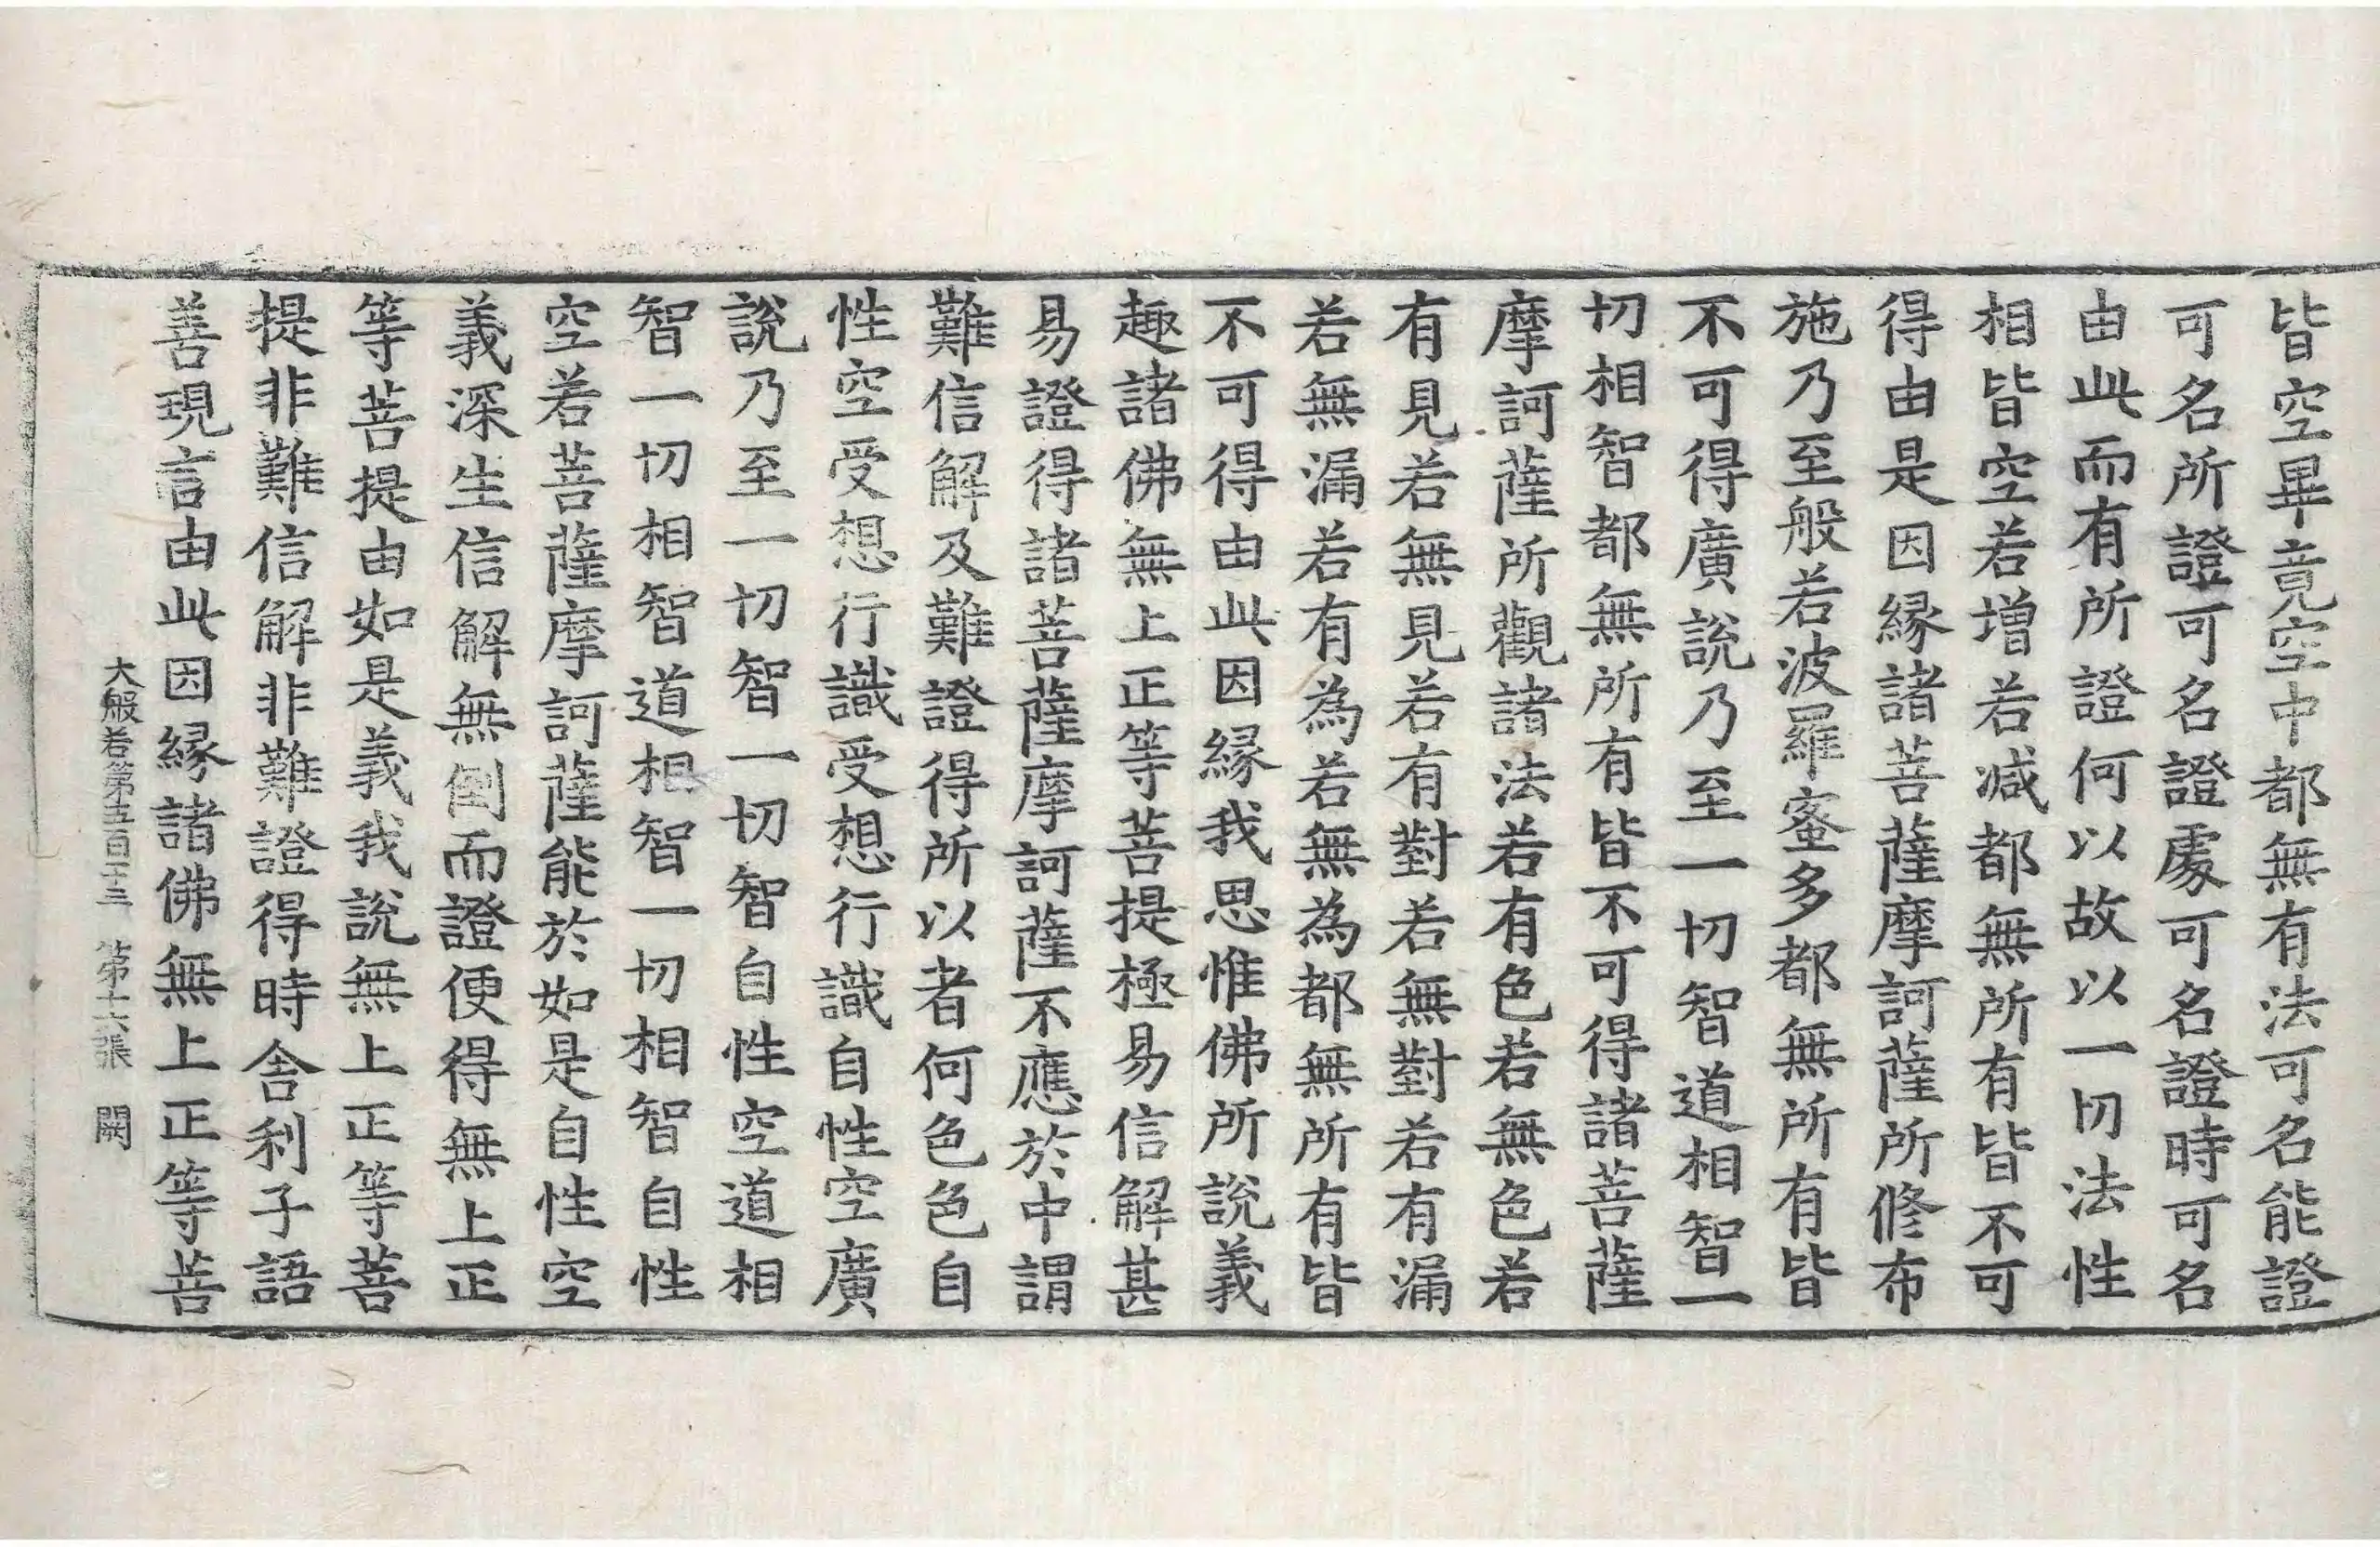 皆空畢竟空中都無有法可名能證
可名所證可名證處可名證時可名
由此而有所證何以故以一切法性
相皆空若增若減都無所有皆不可
得由是因緣諸菩薩摩訶薩所修布
施乃至般若波羅蜜多都無所有皆
不可得廣說乃至一切智道相智一
切相智都無所有皆不可得諸菩薩
摩訶薩所觀諸法若有色若無色若
有見若無見若有對若無對若有漏
若無漏若有為若無為都無所有皆
不可得由此因緣我思惟佛所說義
趣諸佛無上正等菩提極易信解甚
易證得諸菩薩摩訶薩不應於中謂
難信解及難證得所以者何色色自
性空受想行識受想行識自性空廣
說乃至一切智一切智自性空道相
智一切相智道相智一切相智自性
空若菩薩摩訶薩能於如是自性空
義深生信解無倒而證便得無上正
等菩提由如是義我說無上正等菩
提非難信解非難證得時舍利子語
善現言由此因緣諸佛無上正等菩
大般若第五百二十三 第十六張 闕